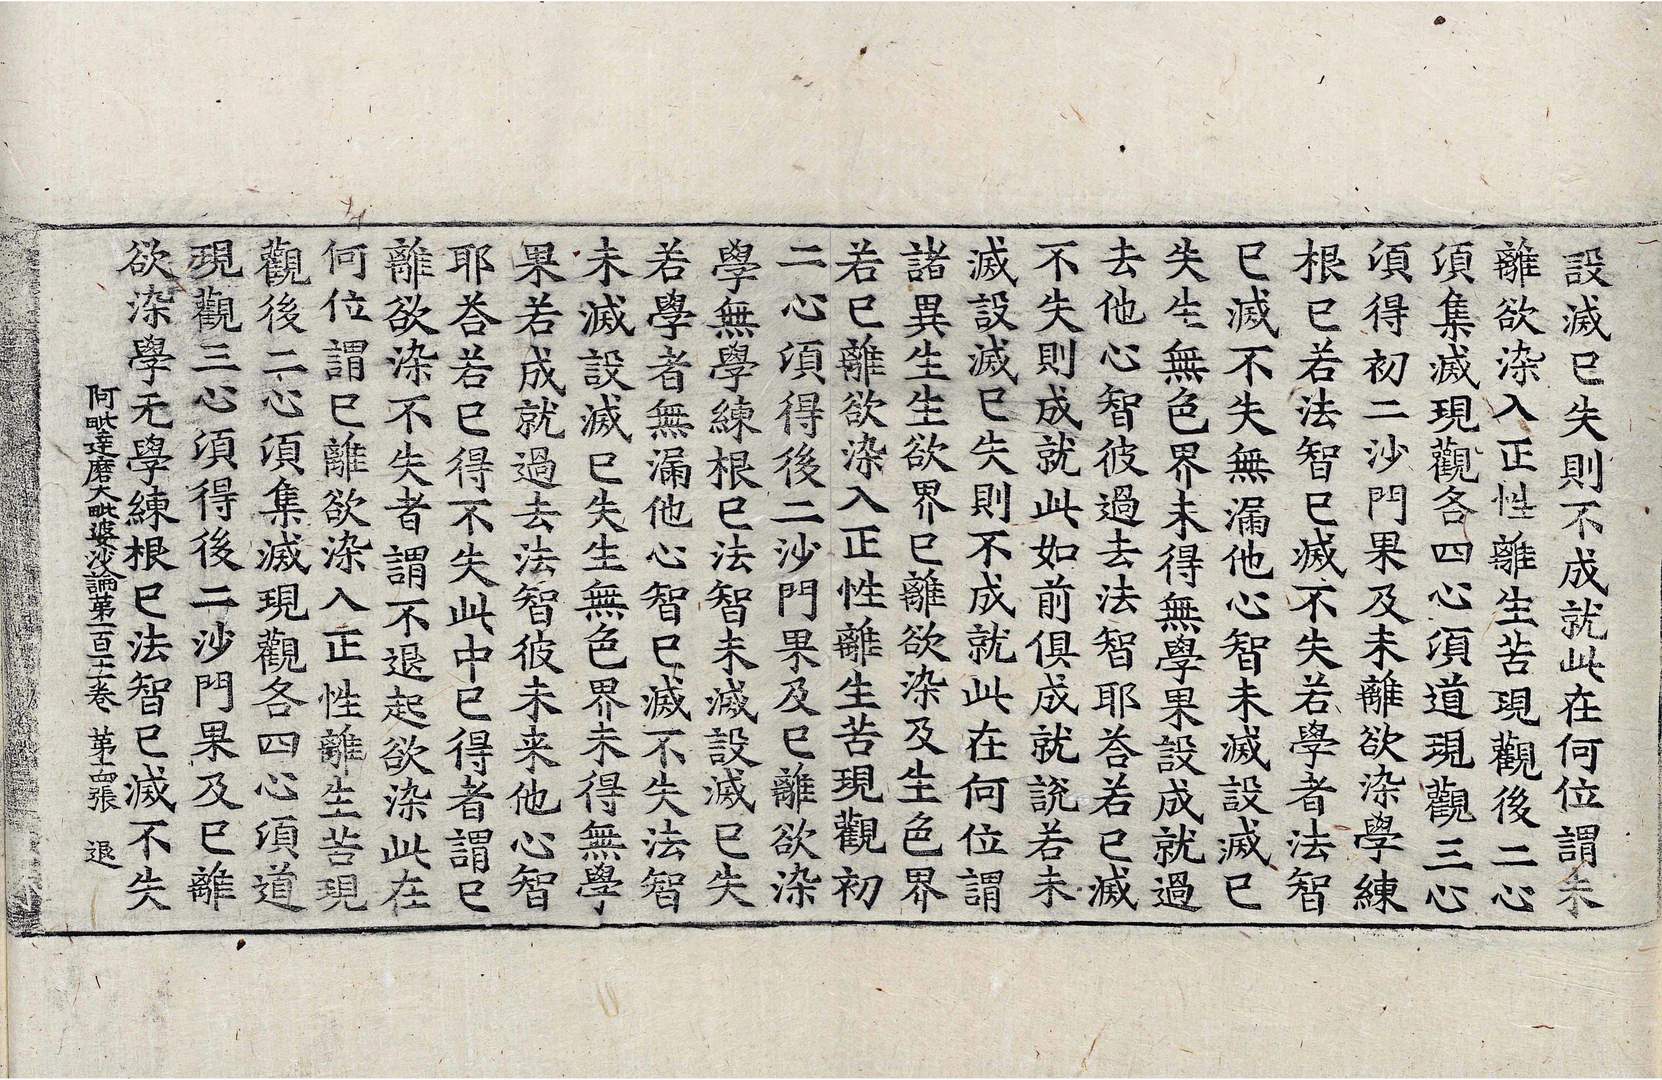 設滅已失則不成就此在何位謂未
離欲染入正性離生苦現觀後二心
須集滅現觀各四心須道現觀三心
須得初二沙門果及未離欲染學練
根已若法智已滅不失若學者法智
已滅不失無漏他心智未滅設滅已
失生無色界未得無學果設成就過
去他心智彼過去法智耶荅若已滅
不失則成就此如前俱成就說若未
滅設滅已失則不成就此在何位謂
諸異生生欲界已離欲染及生色界
若已離欲染入正性離生苦現觀初
二心須得後二沙門果及已離欲染
學無學練根已法智未滅設滅已失
若學者無漏他心智已滅不失法智
未滅設滅已失生無色界未得無學
果若成就過去法智彼未来他心智
耶荅若已得不失此中已得者謂已
離欲染不失者謂不退起欲染此在
何位謂已離欲染入正性離生苦現
觀後二心須集滅現觀各四心須道
現觀三心須得後二沙門果及已離
欲染學无學練根已法智已滅不失
阿毗達磨大毗婆沙論第一百 卷 第 張 退